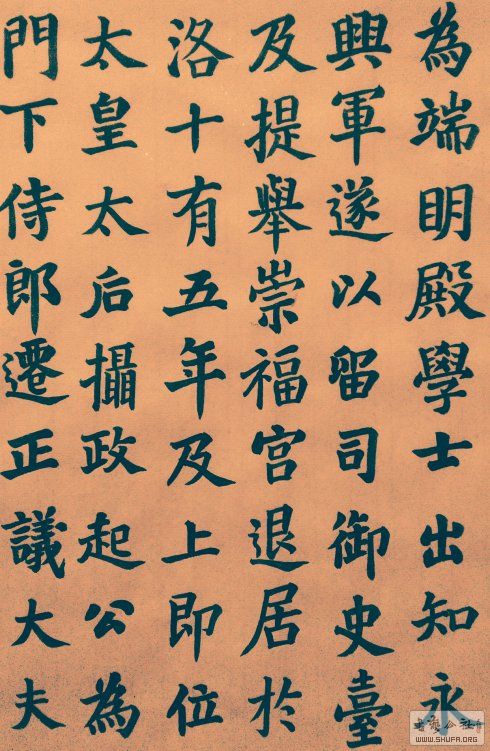 為端明殿學士出知永
興軍遂以留司御史臺
及提舉崇福宮退居於
洛十有五年及上即位
太皇太后攝政起公為
門下侍郎遷正議大夫
WWW.SHUFA.ORG